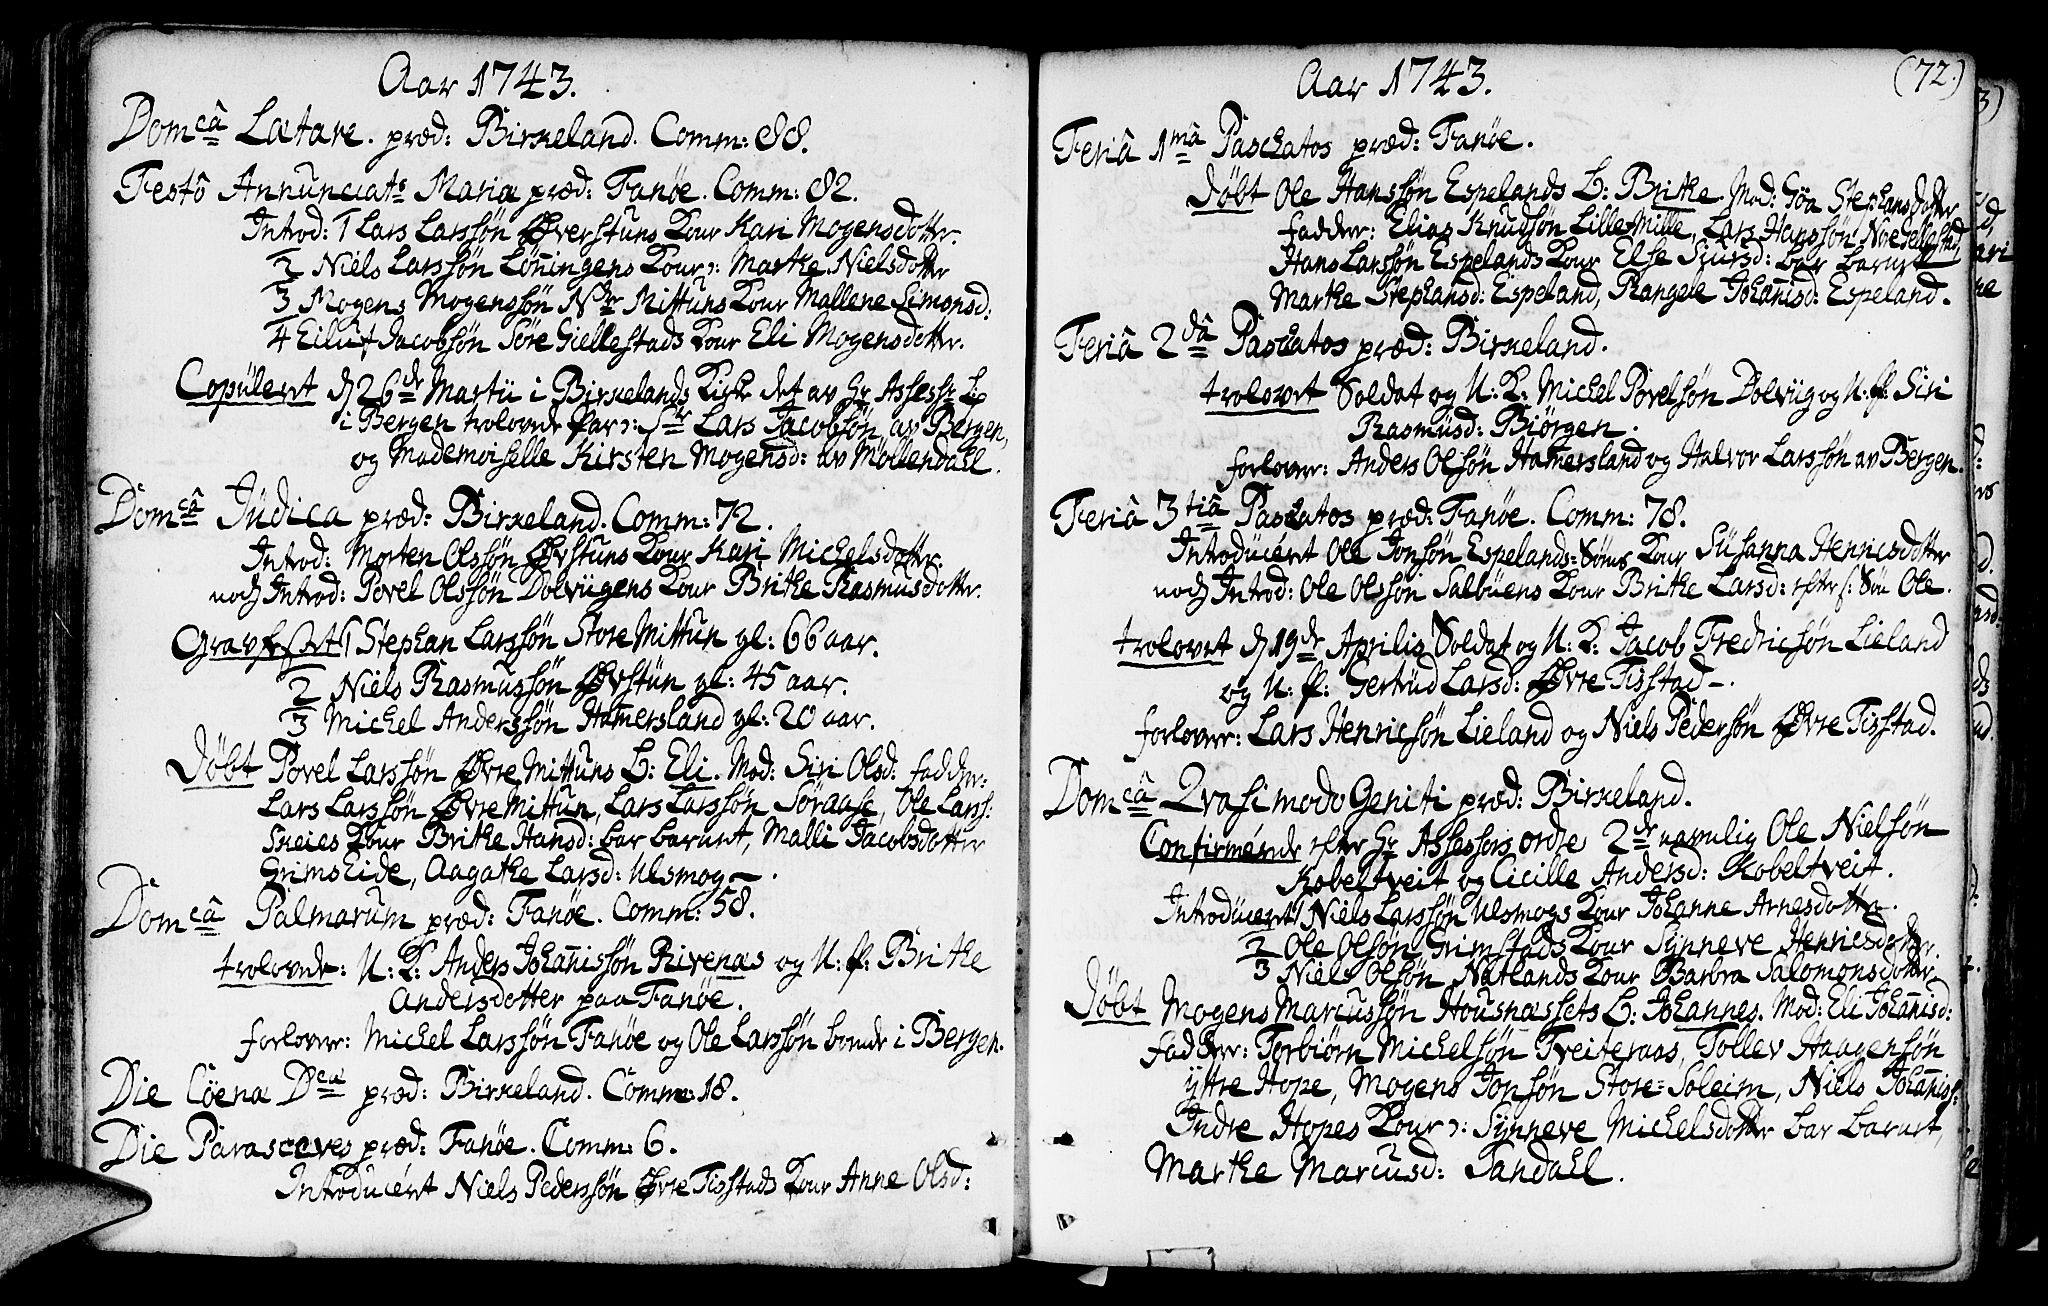 Aar 1743.
Domcâ Lætare. præd: Birkeland. Comm: 88.
Festô Annunciats Mariæ præd: Fanøe. Comm: 82.
Introd: 1 Lars Larssøn Øverstuns Kour Kari Mogensdotter.
2 Niels Larssøn Løningens Kour ɔ: Marthe Nielsdotter
3 Mogens Mogenssøn Ndr Mittuns Kour Mallene Simonsd:
4 Eiluf Jacobsøn Søre Giellestads Kour Eli Mogensdotter.
Copulert d 26de Martii i Birkelands Kirke det av Hr Assessr Lip
i Bergen trolovede Par ɔ: Sr Lars Jacobsøn av Bergen,
og Mademoiselle Kirsten Mogensd: av Møllendahl.
Domcâ Judica præd: Birkeland. Comm: 72.
Introd: Morten Olssøn Øvstuns Kour Kari Michelsdotter.
noch Introd: Povel Olssøn Dolviigens Kour Brithe Rasmusdotter.
Gravfæstet 1 Stephan Larssøn Store Mittun gl: 66 aar.
2 Niels Rasmussøn Øvstun gl: 45 aar.
3 Michel Anderssøn Hamersland gl: 20 aar.
Døbt Povel Larssøn Øvre Mittuns B: Eli. Mod: Siri Olsd: fadder:
Lars Larssøn Øvre Mittun, Lars Larssøn Søraase, Ole Larss:
Skeies Kour Brithe Hansd: bar barnet, Malli Jacobsdotter
Grimseide, Aagathe Larsd: Ulsmog.
Domcâ Palmarum præd: Fanøe. Comm: 58.
trolovede: U: K: Anders Johanissøn Rivenæs og U: p: Brithe
Andersdotter paa Fanøe.
forlover: Michel Larssøn Fanøe og Ole Larssøn boende i Bergen.
Die Cöenæ Dcæ præd: Birkeland. Comm: 18.
Die Parasceves præd: Fanøe. Comm: 6.
Introducert Niels Pederssøn Øvre Tisstads Kour Anne Olsd:
Aar 1743.
(72.)
Feriâ 1mâ Paschatos præd: Fanøe.
Døbt Ole Hanssøn Espelands B: Brithe. Mod: Gøa Stephansdotter
fadder: Elias Knudsøn Lille Milde, Lars Hanssøn Nore
Hans Larssøn Espelands Kour Else Siursd: bar barnet
Marthe Stephansd: Espeland, Rangele Johanisd: Espeland.
Feriâ 2dâ Paschatos præd: Birkeland.
trolovet Soldat og U: K: Michel Povelsøn Dolviig og U: p: Siri
Rasmusd: Biørgen.
forlover: Anders Olsøn Hamersland og Halvor Larssøn av Bergen.
Feriâ 3tiâ Paschatos præd: Fanøe. Comm: 78.
Introducert Ole Jonsøn Espelands= Kour Susanna Henricsdotter
noch Introd: Ole Olssøn Salbuens Kour Brithe Larsd: efter s: Søn Ole.
trolovet d 19de Aprilis Soldat og U: K: Jacob Fredricsøn Lieland
og U: p: Gertrud Larsd: Øvre Tisstad.
forlover: Lars Henricsøn Lieland og Niels Pedersøn Øvre Tisstad.
Domcâ Qvasimodo Geniti præd: Birkeland.
Confirmerede efter Hr Assessors ordre 2de navnlig Ole Nielsøn
Kobeltveit og Cicille Andersd: Kobeltveit.
Introducert 1 Niels Larssøn Ulsmogs Kour Johanne Arnesdotter.
2 Ole Olsøn Grimstads Kour Synneve Henricsdotter.
3 Niels Olsøn Natlands Kour Barbra Salomonsdotter.
Døbt Mogens Marcussøn Housnæssets B: Johannes. Mod: Eli Johanisd:
fadder: Torbiørn Michelsøn Tveiteraas, Tollev Haagensøn
yttre Hope, Mogens Jonsøn Store= Soleim, Niels Johaniss:
Indre Hopes Kour ɔ: Synneve Michelsdotter bar barnet,
Marthe Marcusd: Sandahl.